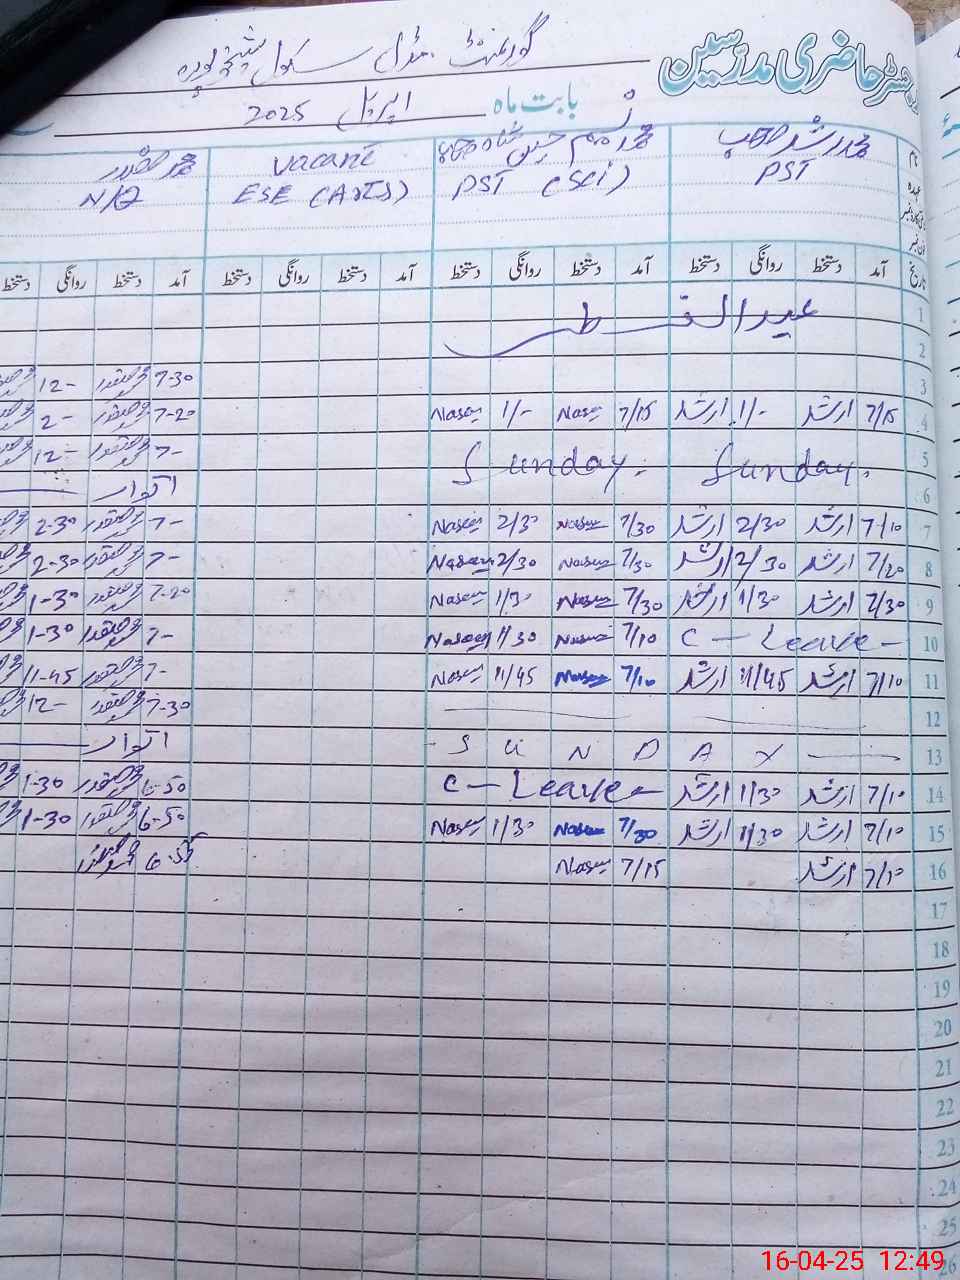 رجسٹر حاضری مدرسین گورنمنٹ مڈل سکول شیخوپورہ
بابت ماہ اپریل 2025
نام محمد ارشد صاحب محمد نسیم حسین شاہ صاحب Vacant
عہدہ PST PST (Sci) ESE (Arts) N/Q
تاریخ آمد دستخط روانگی دستخط آمد دستخط روانگی دستخط آمد دستخط روانگی دستخط آمد دستخط روانگی دستخط
1 عید الفطر
2
3 7-30 12-
4 7/15 ارشد 1/- ارشد 7/15 Naseem 1/- Naseem 7-20 2-
5 7- 12-
6 Sunday. Sunday. اتوار
7 7/10 ارشد 2/30 ارشد 7/30 Naseem 2/30 Naseem 7- 2-30
8 7/20 ارشد 2/30 ارشد 7/30 Naseem 2/30 Naseem 7- 2-30
9 7/30 ارشد 1/30 ارشد 7/30 Naseem 1/30 Naseem 7-20 1-30
10 C - Leave - 7/10 Naseem 1/30 Naseem 7- 1-30
11 7/10 ارشد 11/45 ارشد 7/10 Naseem 11/45 Naseem 7- 11-45
12 7-30 12-
13 S U N D A Y اتوار
14 7/10 ارشد 1/30 ارشد C - Leave - 6-50 1-30
15 7/10 ارشد 1/30 ارشد 7/30 Naseem 1/30 Naseem 6-50 1-30
16 7/10 ارشد 7/15 Naseem 6-55
17
18
19
20
21
22
23
24
25
26
16-04-25 12:49